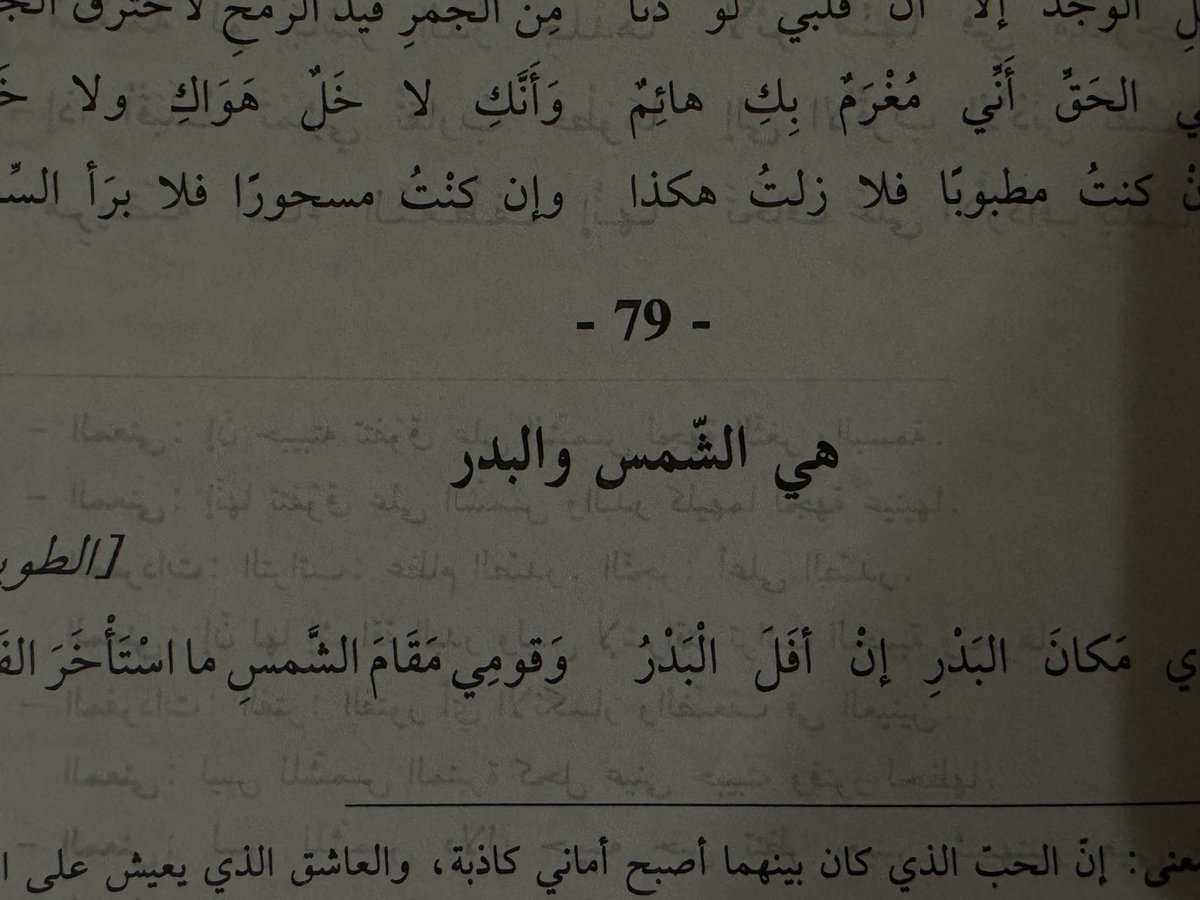 الوجد إلا أن قلبي لو دنا مِنَ الجمرِ قيدَ الرمحِ لاحترق
الحَقِّ أَنِّي مُغْرَمٌ بِكِ هائِمٌ وَأَنَّكِ لا خَلٌ هَوَاكِ ولا
كنتُ مطبوبًا فلا زلتُ هكذا وإن كنْتُ مسحورًا فلا برَأ
- 79 -
هي الشّمس والبدر
[الطوي
مَكانَ البَدْرِ إنْ أفَلَ الْبَدْرُ وَقومِي مَقَامَ الشَّمسِ ما اسْتَأْخَرَ
عنى: إنّ الحبّ الذي كان بينهما أصبح أماني كاذبة، والعاشق الذي يعيش على